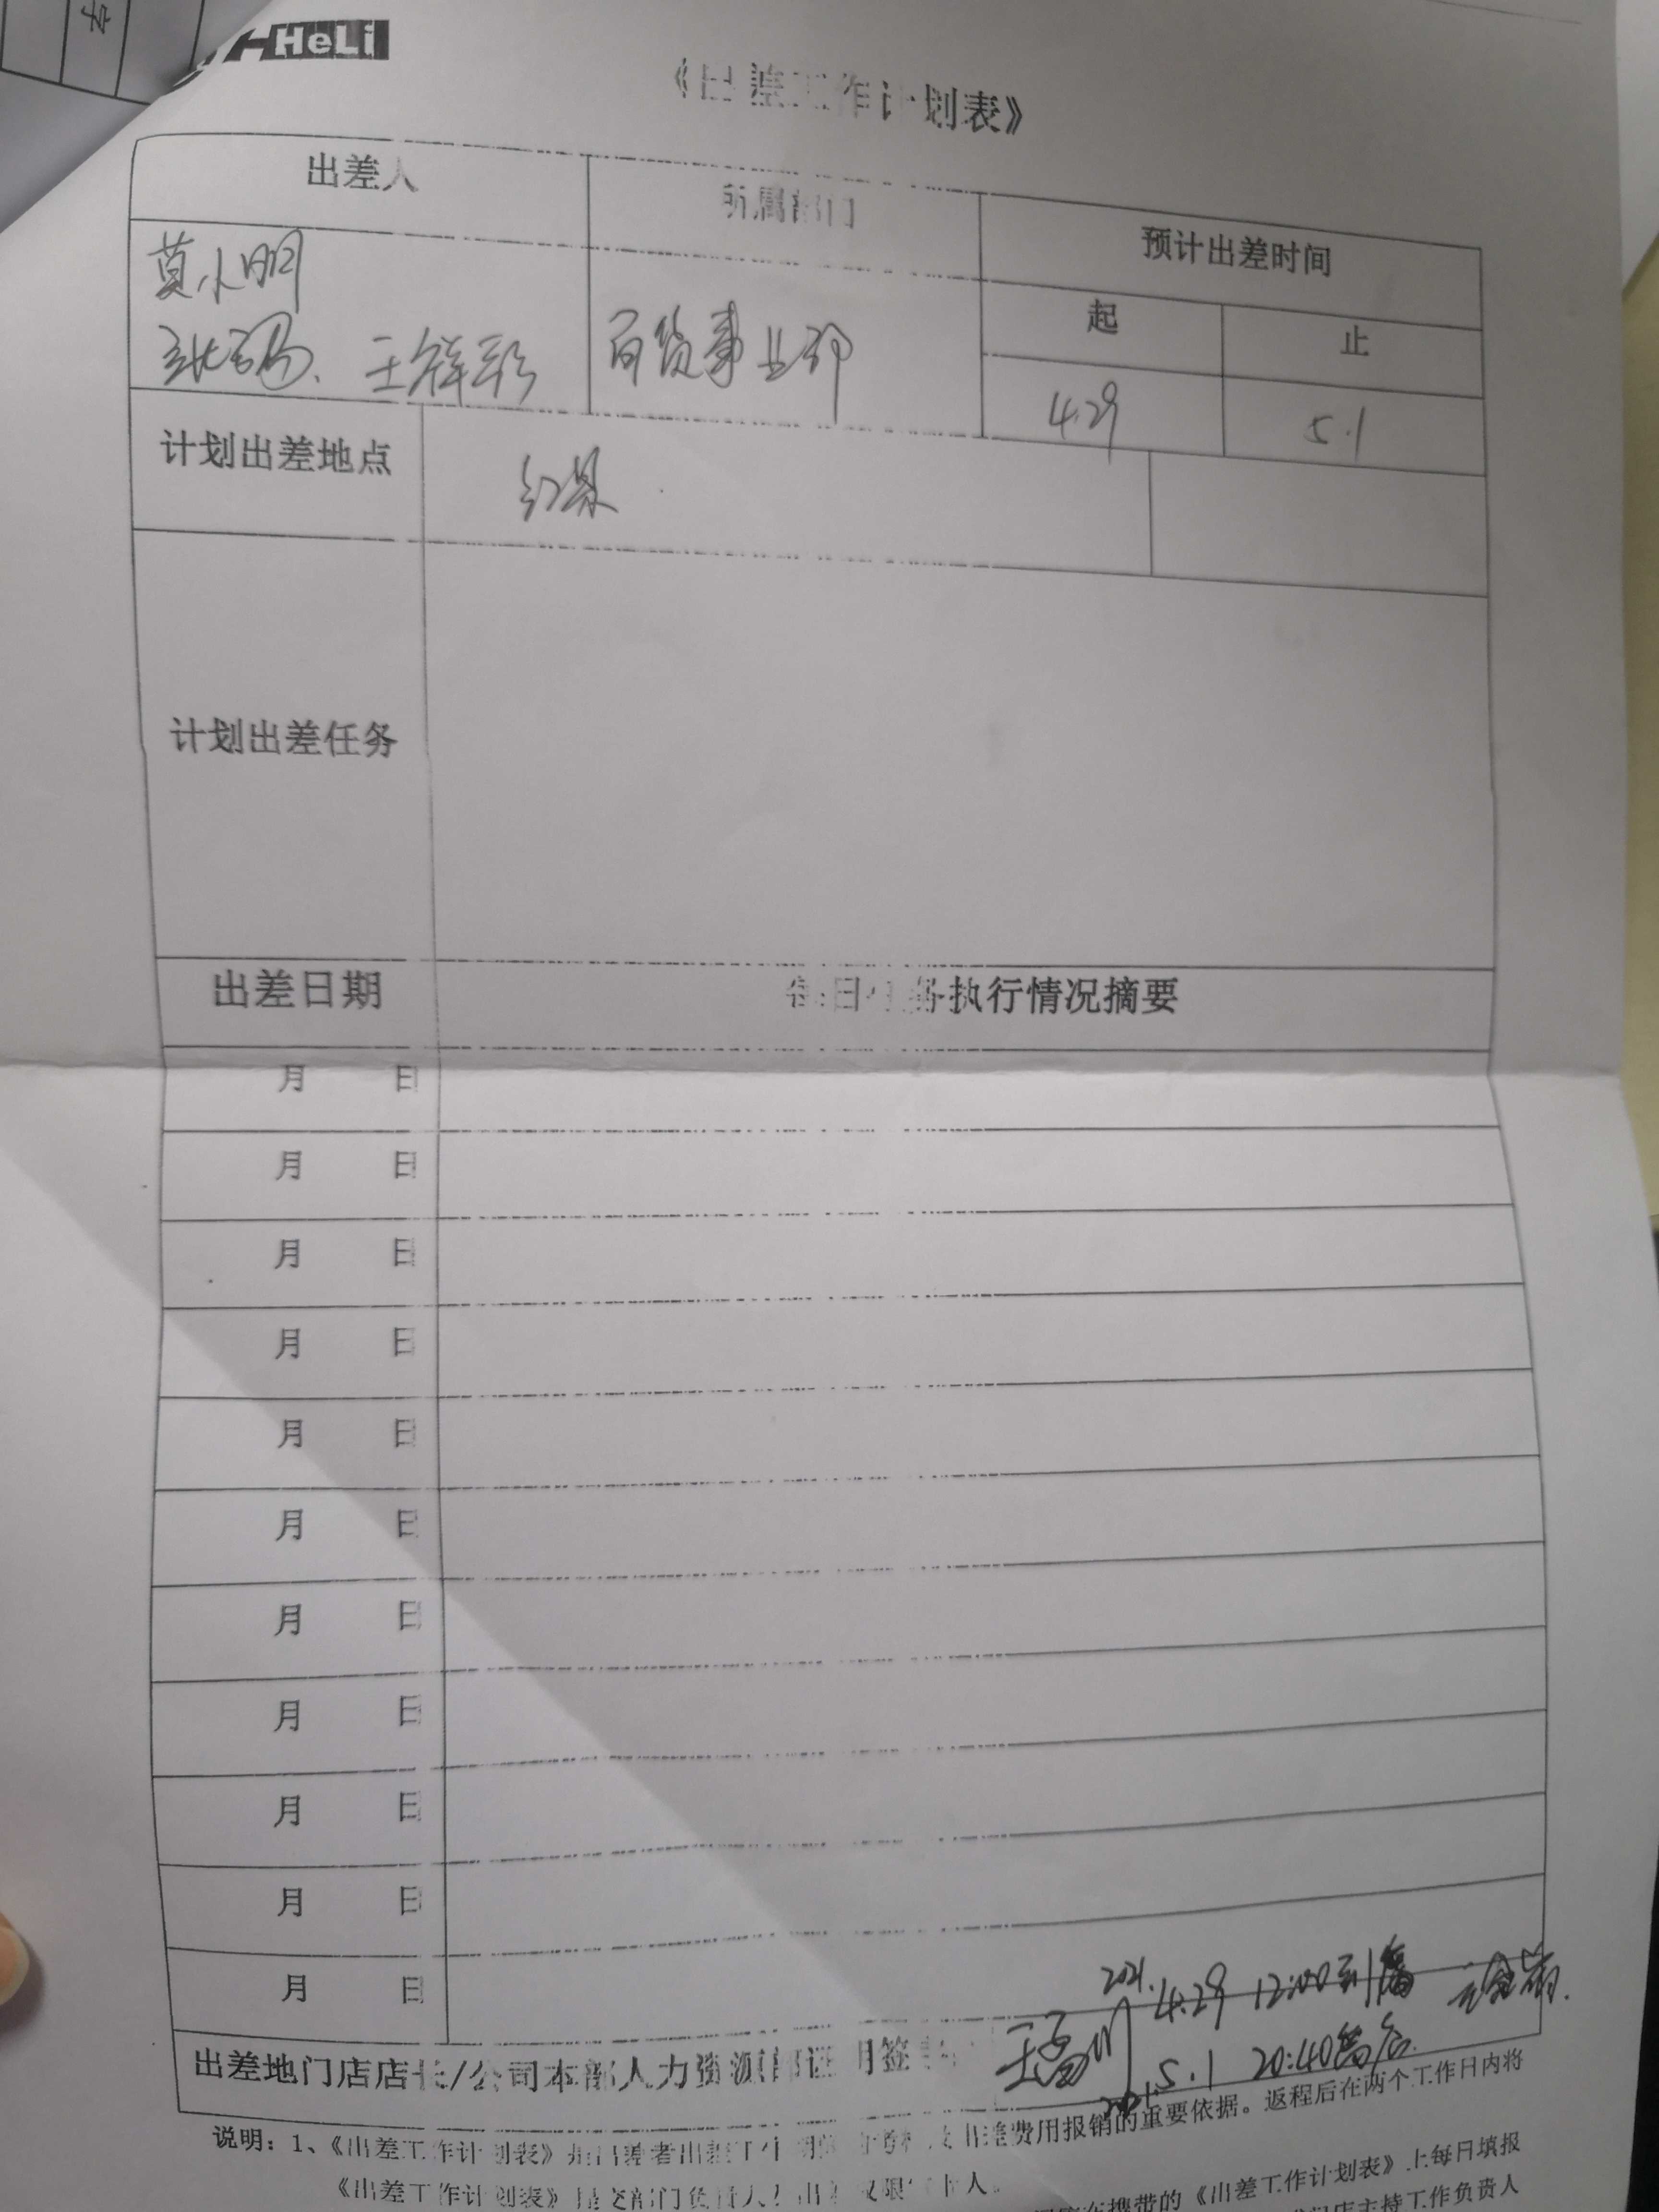 字
HeLi
《出差工作计划表》
出差人 所属部门 预计出差时间
起 止
莫小明
王祥彩 百货事业部 4.29 5.1
计划出差地点
计划出差任务
出差日期 每日任务执行情况摘要
月 日
月 日
月 日
月 日
月 日
月 日
月 日
月 日
月 日
月 日
月 日
2021.4.29 12:00到
出差地门店店长/公司本部人力资源部证明签
5.1 20:40离店
说明：1、《出差工作计划表》是出差者出差工作 费用报销的重要依据。返程后在两个工作日内将
《出差工作计划表》提交部门负责人 出差权限 人。
携带的《出差工作计划表》上每日填报
门店主持工作负责人